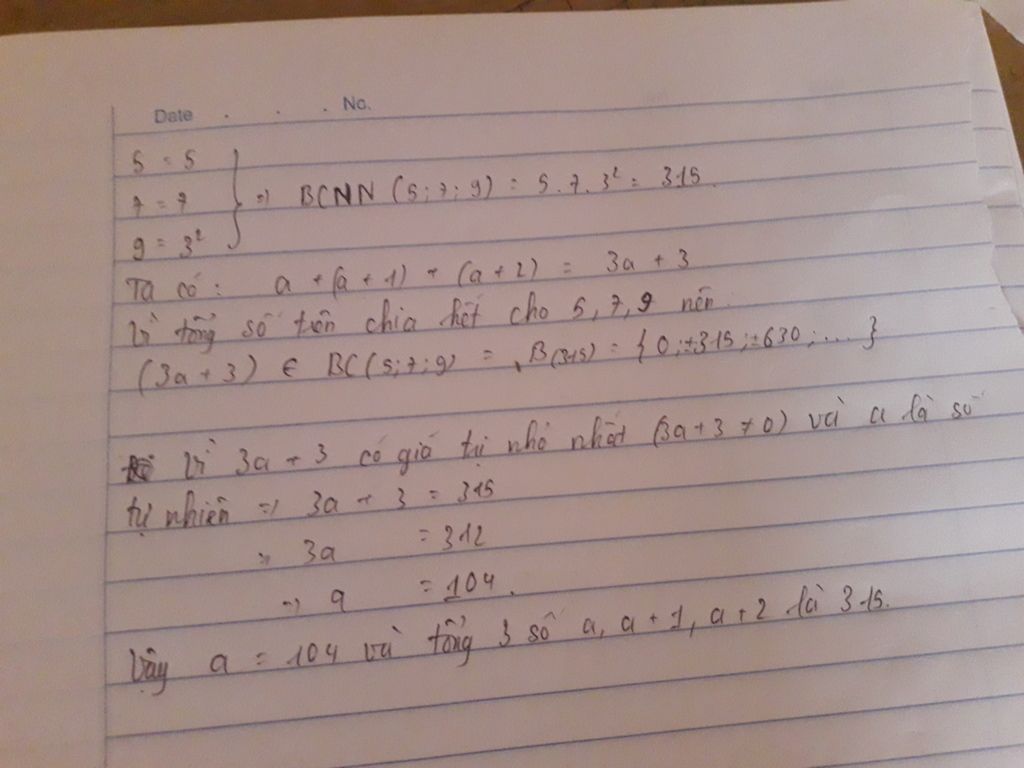 Date . . . No.
5 = 5
7 = 7 } => BCNN (5; 7; 9) = 5.7.3² = 315.
9 = 3²
Ta có: a + (a + 1) + (a + 2) = 3a + 3
Vì tổng số trên chia hết cho 5, 7, 9 nên
(3a + 3) ∈ BC (5; 7; 9) = B(315) = {0; ±315; ±630; ...}
Vì 3a + 3 có giá trị nhỏ nhất (3a + 3 ≠ 0) và a là số
tự nhiên => 3a + 3 = 315
=> 3a = 312
=> a = 104.
Vậy a = 104 và tổng 3 số a, a + 1, a + 2 là 315.